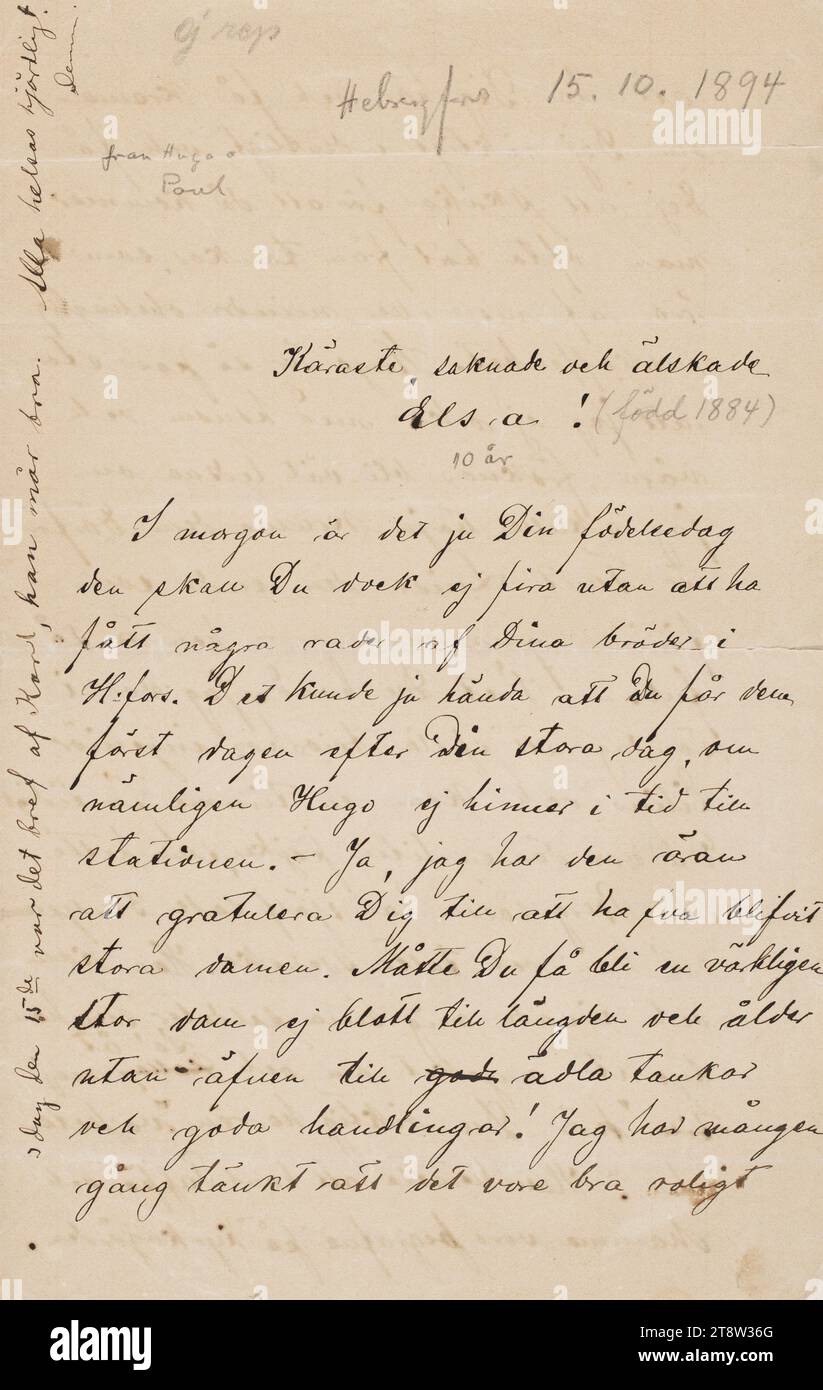 ej rep
Helsingfors 15.10.1894
från Hugo o
Paul
Käraste, saknade och älskade
Elsa! (född 1884)
10 år
I morgon är det ju Din födelsedag
den skall Du dock ej fira utan att ha
fått några rader af Dina bröder i
H:fors. Det kunde ju hända att Du får dem
först dagen efter Din stora dag, om
nämligen Hugo ej hinner i tid till
stationen. – Ja, jag har den äran
att gratulera Dig till att ha blifvit
stora damen. Måtte Du få bli en värkligen
stor dam ej blott till längden och ålder
utan äfven till goda ädla tankar
och goda handlingar! Jag har mången
gång tänkt att det vore bra roligt
dag den 15de var det bref af Karl, han mår bra. Alla helsas hjärtligt.
alamy
Image ID: 2T8W36G
www.alamy.com